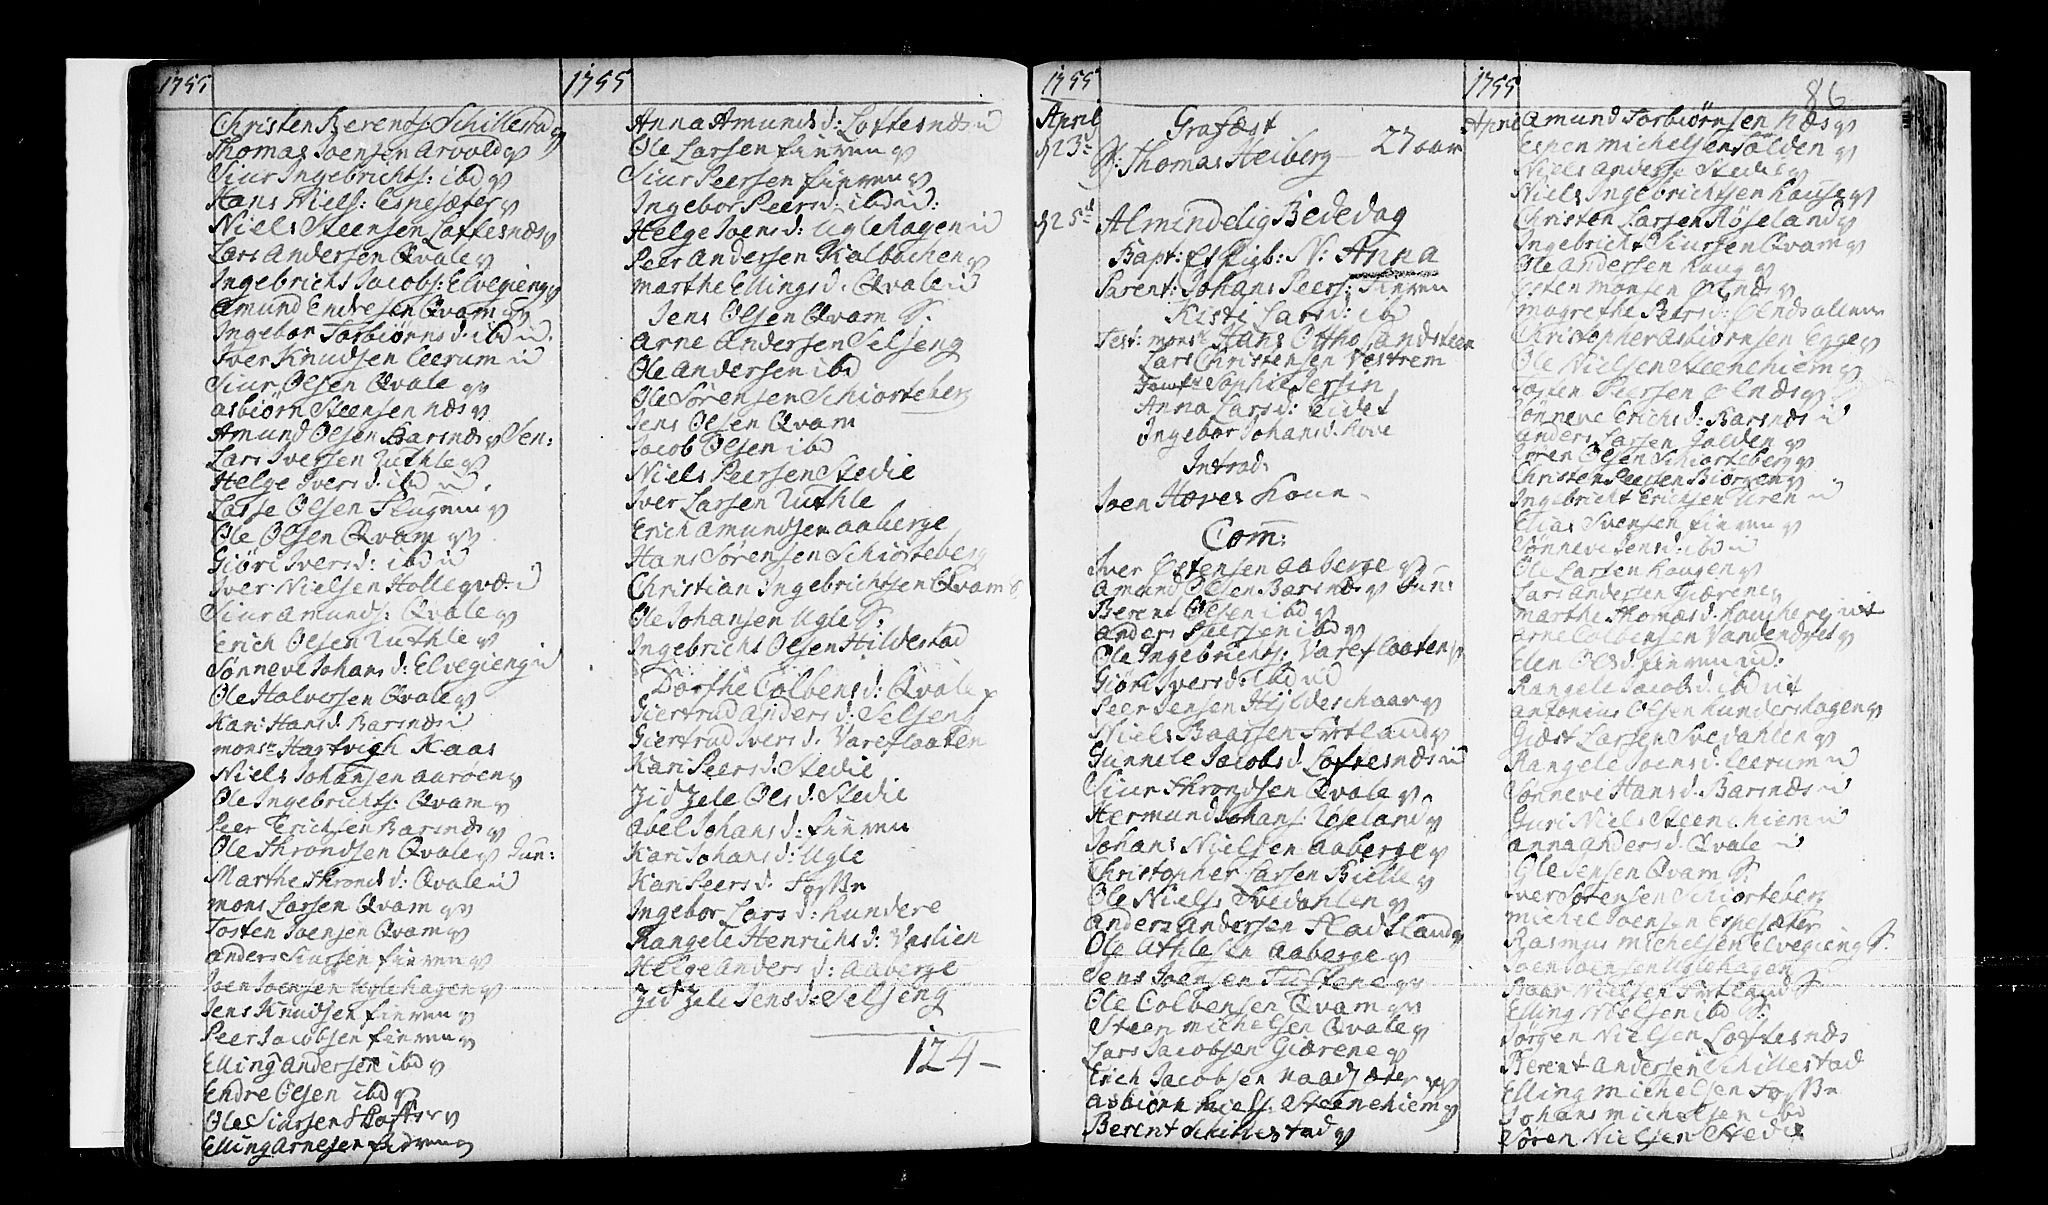 1755
Christen Berents: Schillestad
Thomas Joensen Arvold
Siur Ingebrichts: ibd
Hans Niels: Espesæter
Niels Steensen Loftesnæs
Lars Andersen Qvale
Ingebricht Jacobs: Elvegieng
Amund Endresen Qvam
Ingebor Torbiørns d: ibd
Iver Knudsen Leerum
Siur Olsen Qvale
Asbiørn Steensen Næs
Amund Olsen Barsnæs Sen:
Lars Iversen Uthle
Helge Ivers d: ibd
Lasse Olsen
Ole Olsen Qvam
Giøri Ivers d: ibd
Iver Nielsen
Siur Amunds: Qvale
Erich Olsen Uthle
Sønneve Johans d: Elvegieng
Ole Halversen Qvale
Kari Hans d: Barsnæs
Monsr Hartvigh Kaas
Niels Johansen Aarøen
Ole Ingebrichts: Qvam
Peer Erichsen Barsnæs
Ole Throndsen Qvale Jun:
Marthe Thronds d: Qvale
Mons Larsen Qvam
Tosten Joensen Qvam
Anders Siursen Finven
Joen Joensen Uglehagen
Jens Knudsen Finven
Peer Jacobsen Finven
Elling Andersen ibd
Endre Olsen ibd
Ole Siursen
Elling Arnesen
1755
Anna Amunds d: Loftesnæs
Ole Larsen Finven
Siur Peersen Finven
Ingebor Peers d: ibd
Helge Joens d: Uglehagen
Peer Andersen Kalbachen
Marthe Ellings d. Qvale
Jens Olsen Qvam S.
Arne Andersen Selseng
Ole Andersen ibd
Ole Sørensen Schiorteberg
Jens Olsen Qvam
Jacob Olsen ibd
Niels Peersen Stedie
Iver Larsen Uthle
Erich Amundsen Aaberge
Hans Sørensen Schiorteberg
Christian Ingebrichtsen Qvam
Ole Johansen Ugle S.
Ingebricht Olsen Hildestad
Dorthe Colbens d: Qvale
Giertrud Anders d: Selseng
Giertrud Ivers d. Vareflaaten
Kari Peers d: Stedie
Zidzele Ols d: Stedie
Abel Johans d: Finven
Kari Johans d: Ugle
Kari Peers d.
Ingebor Lars d: Hundere
Rangele Henrichs d: Veslien
Helge Anders d: Aaberge
Zidzele Jens d: Selseng
124-
1755
April
d 23de
Grafæst
Thomas Heiberg - 27 aar
d 25d
Almindelig Bededag
Bapt: N: Anna
Parent: Johans Peers: Finven
Kisti Lars d: ibd
Test: Monsr Hans Ottho Sandsteen
Lars Christensen Vestrem
Sophie Jersin
Anna Lars d: Eidet
Ingebor Johans d. Hove
Introd:
Joen Hoves Kone
Com:
Iver Ostensen Aaberge
Amund Olsen Barsnæs Jun:
Berent Olsen ibd
Anders Peersen ibd
Ole Ingebrichts: Vareflaaten
Giøri Ivers d: ibd
Peer Jensen Hyldeschaar
Niels Baarsen
Gunnele Jacobs d. Loftesnæs
Siur Throndsen Qvale
Hermund Johans:
Johans Nielsen Aaberge
Christopher Larsen Bielle
Ole Niels: Svedahlen
Anders Andersen
Ole Athlesen Aaberge
Jens Joensen
Ole Colbensen Qvam
Steen Michelsen Qvale
Lars Jacobsen Giærene
Erich Jacobsen Naadsæter
Asbiørn Niels: Steenehiem
Berent Schillestad
1755
86
April
Amund Torbiørnsen Næs
Espen Michelsen
Niels Anders: Stedie
Niels Ingebrichtsen Hauge
Christen Larsen Røseland
Ingebricht Siursen Qvam
Ole Andersen Haug
Tosten Monsen Olnæs
Magrethe Bers d:
Christopher Asbiørnsen Egge
Ole Nielsen Steenehiem
Tosten Peersen Olnæs
Sønneve Erichs d: Barsnæs
Anders Larsen
Søren Olsen Schiorteberg
Christen Peersen
Ingebricht Erichsen
Elias Svensen Finven
Sønneve Jens d: ibd
Ole Larsen Haugen
Lars Andersen Giærene
Marthe Thomas d. Hougberg
Arne Colbensen
Elen Ols d: Finven
Rangele Jacobs d. ibd
Antonius Olsen Hundershagen
Giest Larsen Svedahlen
Rangele Joens d. Leerum
Sønneve Hans d. Barsnæs
Guri Niels: Steenehiem
Anna Anders d. Qvale
Ole Jensen Qvam S.
Iver Sørensen Schiorteberg
Michel Joensen Espesæter
Rasmus Michelsen Elvegieng S.
Joen Joensen Uglehagen
Baar Nielsen S
Elling Nielsen ibd S.
Jørgen Nielsen Loftesnæs
Berent Andersen Schillestad
Elling Michelsen
Johans Michelsen ibd
Søren Nielsen Stedie